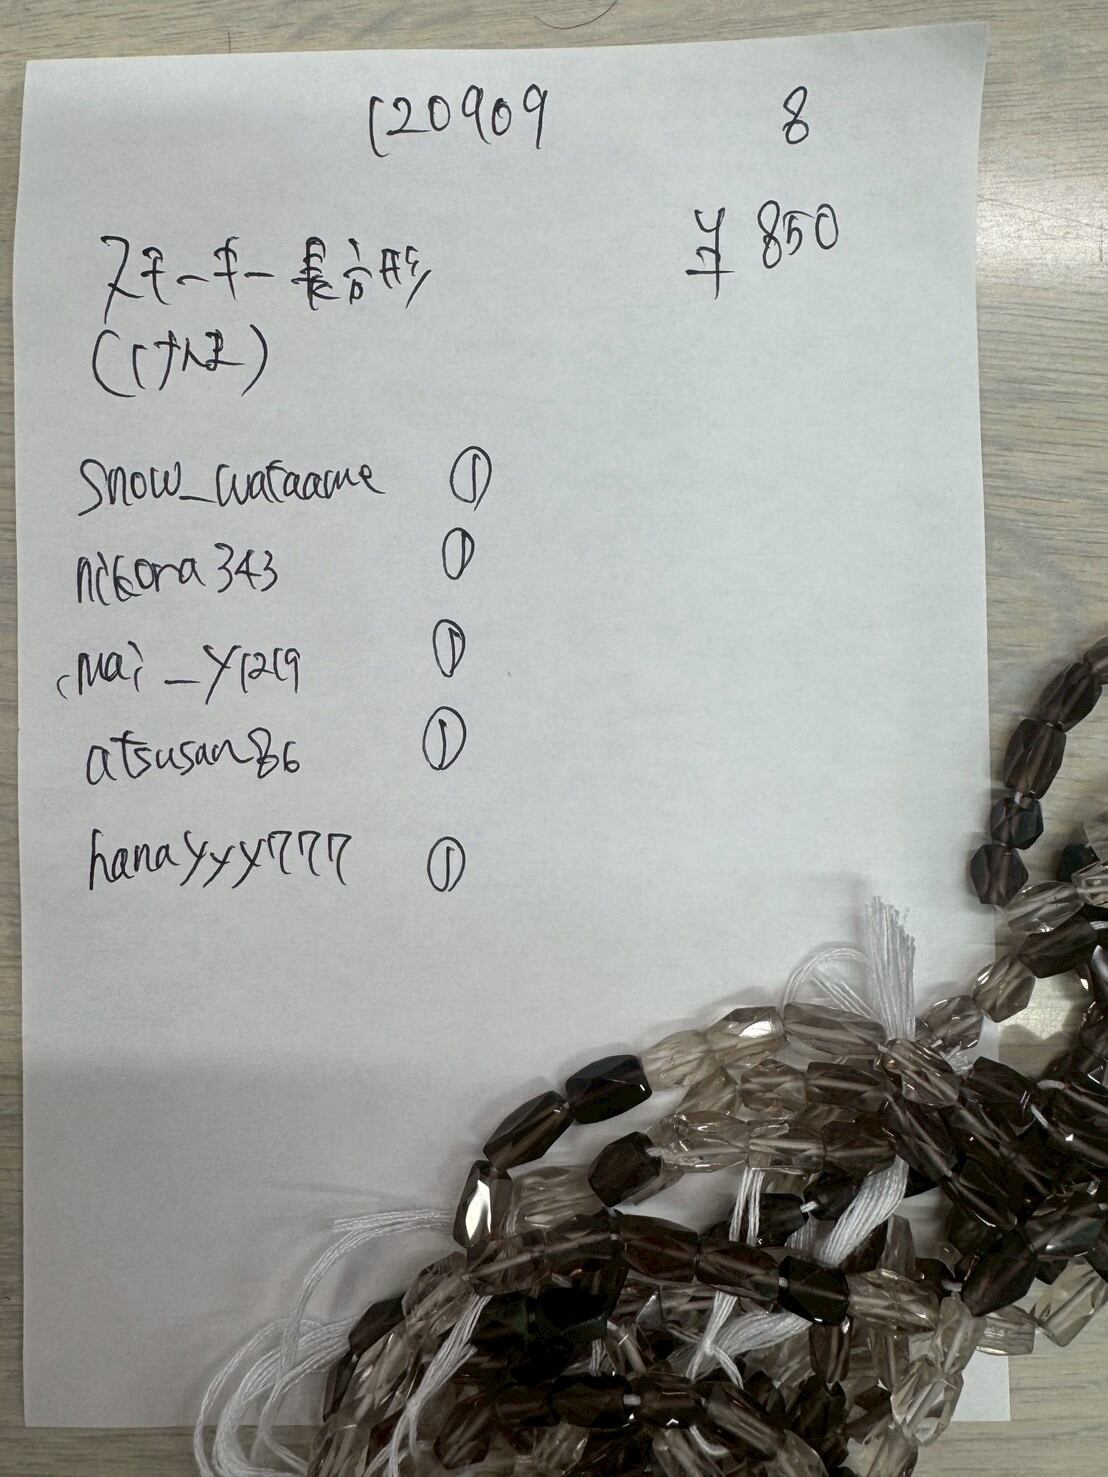 120909 8
スモーキー長方形 ¥850
snow_wataame ①
nikora343 ①
mai_y1219 ①
atsusan86 ①
hanayyy777 ①